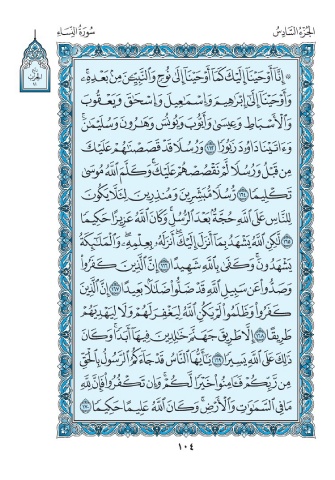 الجزء السادس
سورة النساء
الحزب
۞ إِنَّا أَوْحَيْنَا إِلَيْكَ كَمَا أَوْحَيْنَا إِلَىٰ نُوحٍ وَالنَّبِيِّينَ مِنْ بَعْدِهِ ۚ
وَأَوْحَيْنَا إِلَىٰ إِبْرَاهِيمَ وَإِسْمَاعِيلَ وَإِسْحَاقَ وَيَعْقُوبَ
وَالْأَسْبَاطِ وَعِيسَىٰ وَأَيُّوبَ وَيُونُسَ وَهَارُونَ وَسُلَيْمَانَ ۚ
وَآتَيْنَا دَاوُودَ زَبُورًا ١٦٣ وَرُسُلًا قَدْ قَصَصْنَاهُمْ عَلَيْكَ
مِنْ قَبْلُ وَرُسُلًا لَمْ نَقْصُصْهُمْ عَلَيْكَ ۚ وَكَلَّمَ اللَّهُ مُوسَىٰ
تَكْلِيمًا ١٦٤ رُسُلًا مُبَشِّرِينَ وَمُنْذِرِينَ لِئَلَّا يَكُونَ
لِلنَّاسِ عَلَى اللَّهِ حُجَّةٌ بَعْدَ الرُّسُلِ ۚ وَكَانَ اللَّهُ عَزِيزًا حَكِيمًا
١٦٥ لَٰكِنِ اللَّهُ يَشْهَدُ بِمَا أَنْزَلَ إِلَيْكَ ۖ أَنْزَلَهُ بِعِلْمِهِ ۖ وَالْمَلَائِكَةُ
يَشْهَدُونَ ۚ وَكَفَىٰ بِاللَّهِ شَهِيدًا ١٦٦ إِنَّ الَّذِينَ كَفَرُوا
وَصَدُّوا عَنْ سَبِيلِ اللَّهِ قَدْ ضَلُّوا ضَلَالًا بَعِيدًا ١٦٧ إِنَّ الَّذِينَ
كَفَرُوا وَظَلَمُوا لَمْ يَكُنِ اللَّهُ لِيَغْفِرَ لَهُمْ وَلَا لِيَهْدِيَهُمْ
طَرِيقًا ١٦٨ إِلَّا طَرِيقَ جَهَنَّمَ خَالِدِينَ فِيهَا أَبَدًا ۚ وَكَانَ
ذَٰلِكَ عَلَى اللَّهِ يَسِيرًا ١٦٩ يَا أَيُّهَا النَّاسُ قَدْ جَاءَكُمُ الرَّسُولُ بِالْحَقِّ
مِنْ رَبِّكُمْ فَآمِنُوا خَيْرًا لَكُمْ ۚ وَإِنْ تَكْفُرُوا فَإِنَّ لِلَّهِ
مَا فِي السَّمَاوَاتِ وَالْأَرْضِ ۚ وَكَانَ اللَّهُ عَلِيمًا حَكِيمًا ١٧٠
١٠٤